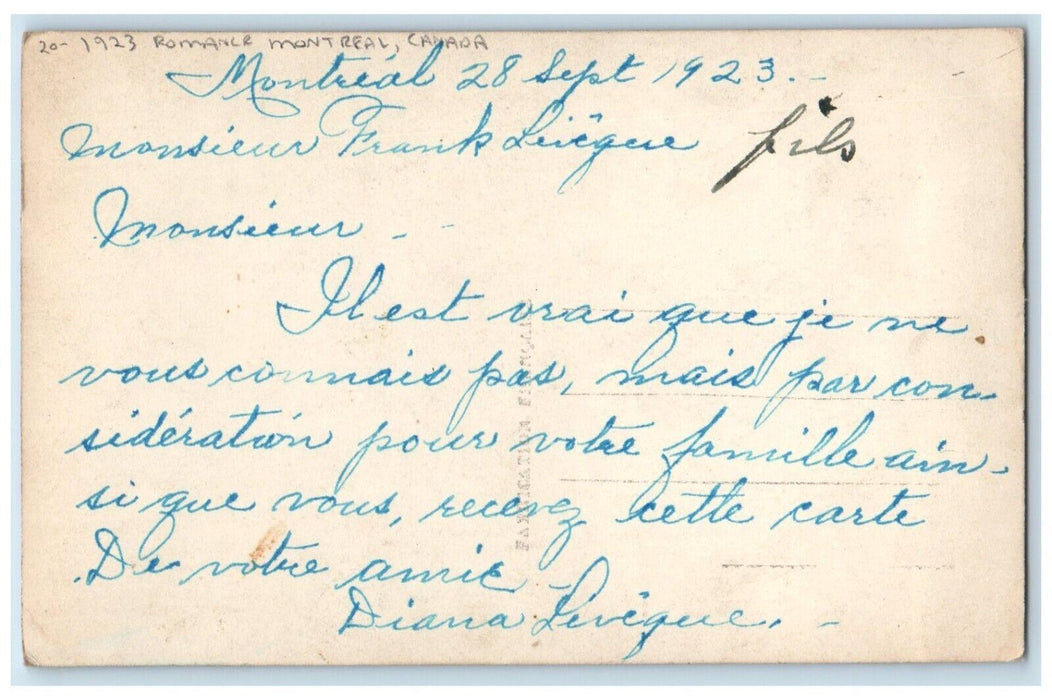 20- 1923 ROMANCE MONTREAL, CANADA
Montréal 28 Sept 1923. -
Monsieur Frank Livêque fils
Monsieur - -
Il est vrai que je ne
vous connais pas, mais par con-
sidération pour votre famille ain-
si que vous, recevez cette carte
De votre amie -
Diana Levêque. -
FABRICATION